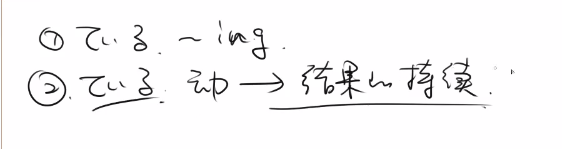 ① ている. ~ing.
② ている. 动 → 结果的持续.